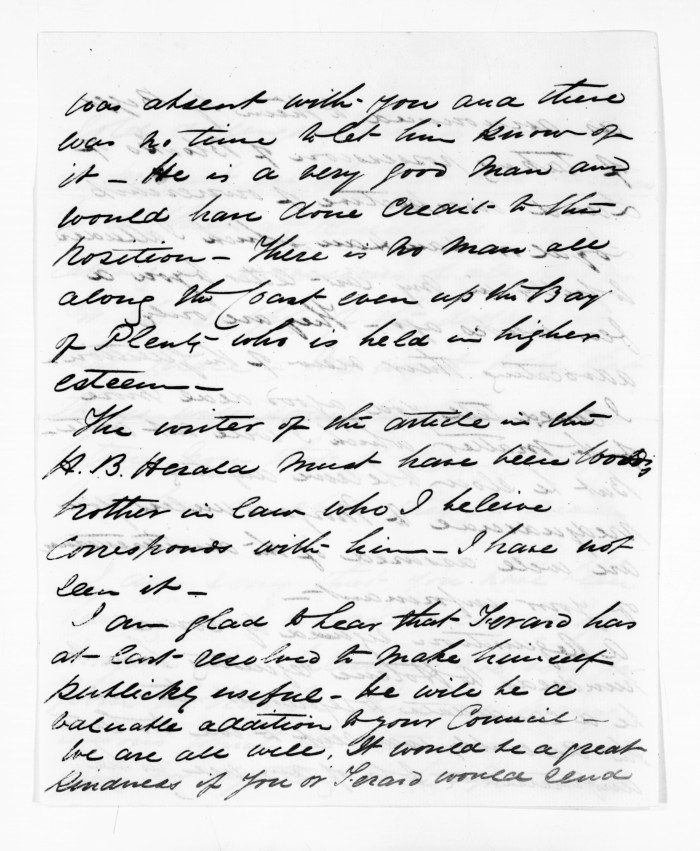 was absent with you and there
was no time to let him know of
it - He is a very good man and
would have done credit to the
Position - There is no man all
along the Coast even up the Bay
of Plenty who is held in higher
esteem -
The writer of the article in the
H. B. Herald must have been Woods
brother in law who I beleive
corresponds with him - I have not
seen it -
I am glad to hear that Ferard has
at last resolved to make himself
publickly useful - He will be a
valuable addition to your Council -
We are all well, It would be a great
kindness if you or Ferard would send